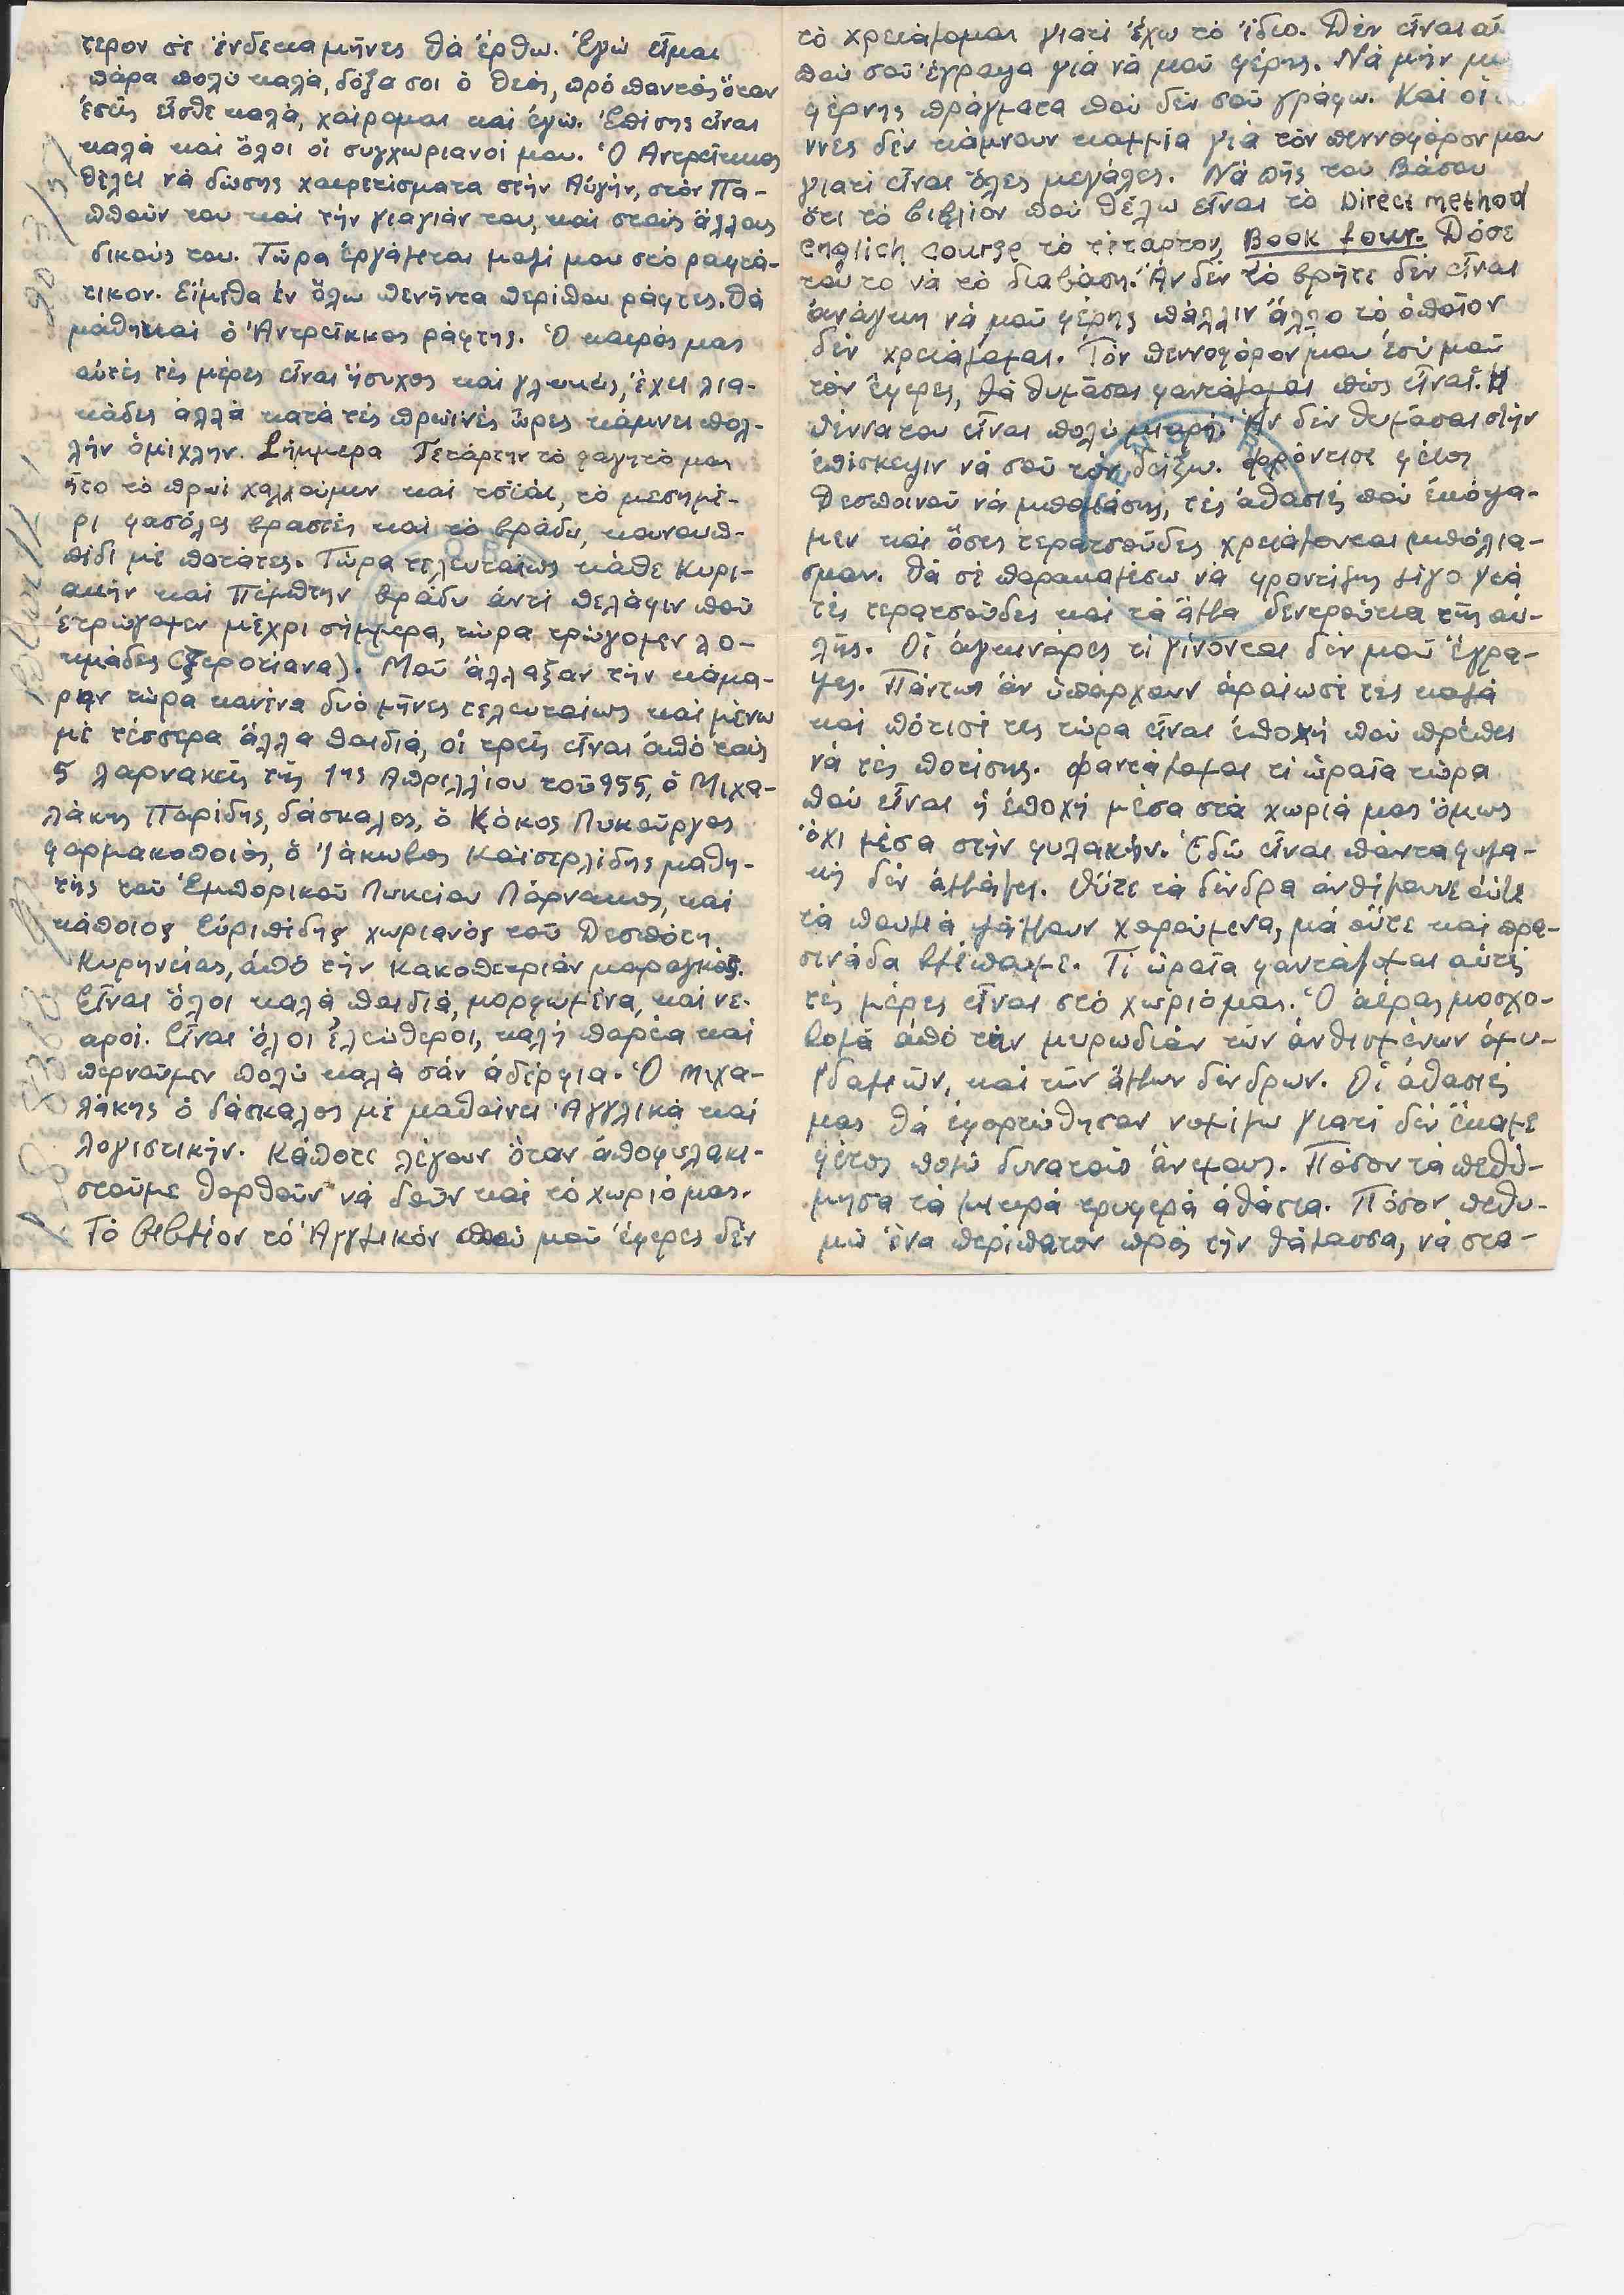 τερον σὲ ἕνδεκα μῆνες θὰ ἔρθω. Ἐγὼ εἶμαι
πάρα πολὺ καλά, δόξα σοι ὁ Θεός, πρό παντὸς ὅταν
ἐσεῖς εἶσθε καλά, χαίρομαι καὶ ἐγώ. Ἐπίσης εἶναι
καλὰ καὶ ὅλοι οἱ συγχωριανοί μου. Ὁ Ἀντρεῖκκος
θέλει νὰ δώσης χαιρετίσματα στὴν Αὐγήν, στὸν Πα-
πποῦν του καὶ τὴν γιαγιάν του, καὶ στοὺς ἄλλους
δικούς του. Τώρα ἐργάζεται μαζί μου στὸ ραφτά-
τικον. Εἴμεθα ἐν ὅλω πενῆντα περίπου ράφτες. Θὰ
μάθη καὶ ὁ Ἀντρεῖκκος ράφτης. Ὁ καιρός μας
αὐτὲς τὲς μέρες εἶναι ἥσυχος καὶ γλυκύς, ἔχει λια-
κάδες ἀλλὰ κατὰ τὲς πρωϊνὲς ὧρες κάμνει πολ-
λὴν ὁμίχλην. Σήμμερα Τετάρτην τὸ φαγητό μας
ἦτο τὸ πρωί χαλλούμιν καὶ τσϊάϊ, τὸ μεσημέ-
ρι φασόλες βραστὲς καὶ τὸ βράδυ, κουνουπ-
πίδι μὲ πατάτες. Τώρα τελευταίως κάθε Κυρι-
ακὴν καὶ Πέμπτην βράδυ ἀντὶ πελάφιν ποῦ
ἐτρώγαμεν μέχρι σήμμερα, τώρα τρώγομεν λο-
κμάδες (ξεροτίανα). Μοῦ ἄλλαξαν τὴν κάμα-
ραν τώρα κανένα δυὸ μῆνες τελευταίως καὶ μένω
μὲ τέσσερα ἄλλα παιδιά, οἱ τρεῖς εἶναι ἀπὸ τοὺς
5 λαρνακεῖς τῆς 1ης Ἀπριλλίου τοῦ 955, ὁ Μιχα-
λάκης Παρίδης, δάσκαλος, ὁ Κόκος Λυκοῦργος
φαρμακοποιός, ὁ Ἰάκωβος Καϊσερλίδης μαθη-
τὴς τοῦ Ἐμπορικοῦ Λυκείου Λάρνακος, καὶ
κάποιος Εὐριπίδης χωριανὸς τοῦ Δεσπότη
Κυρηνείας, ἀπὸ τὴν Κακοπετριὰν μαραγκός.
Εἶναι ὅλοι καλὰ παιδιά, μορφωμένα, καὶ νε-
αροί. Εἶναι ὅλοι ἐλεύθεροι, καλὴ παρέα καὶ
περνοῦμεν πολὺ καλὰ σὰν ἀδέρφια. Ὁ Μιχα-
λάκης ὁ δάσκαλος μὲ μαθαίνει Ἀγγλικὰ καὶ
λογιστικήν. Κάποτε λέγουν ὅταν ἀποφυλακι-
στοῦμε θαρθοῦν νὰ δοῦν καὶ τὸ χωριό μας.
Τὸ βιβλίον τὸ Ἀγγλικὸν ποῦ μοῦ ἔφερες δὲν
τὸ χρειάζομαι γιατὶ ἔχω τὸ ἴδιο. Δὲν εἶναι
ποὺ σοῦ ἔγραψα γιὰ νὰ μοῦ φέρης. Νὰ μὴν
φέρνης πράγματα ποῦ δὲν σοῦ γράφω. Καὶ οἱ
ννες δὲν κάμνουν καμμία γιὰ τὸν πεννοφόρον μου
γιατὶ εἶναι ὅλες μεγάλες. Νὰ πῆς τοῦ Βάσου
ὅτι τὸ βιβλίον ποῦ θέλω εἶναι τὸ Direct method
english course τὸ τέταρτον, Book four. Δόσε
του το νὰ τὸ διαβάση. Ἂν δὲν τὸ βρῆτε δὲν εἶναι
ἀνάγκη νὰ μοῦ φέρης πάλλιν ἄλλο τὸ ὁποῖον
δὲν χρειάζομαι. Τὸν πεννοφόρον μου ἐσὺ μοῦ
τὸν ἔφερες, θὰ θυμᾶσαι φαντάζομαι πῶς εἶναι. Ἡ
πέννα του εἶναι πολὺ μικρή. Ἂν δὲν θυμᾶσαι στὴν
ἐπίσκεψιν νὰ σοῦ τὸν δείξω. Φρόντισε φέτος
Δεσποινοῦ νὰ μπολιάσης, τὲς ἀθασιὲς ποῦ ἐκόψα-
μεν καὶ ὅσες τερατσοῦδες χρειάζονται μπόλια-
σμαν. Θὰ σὲ παρακαλέσω νὰ φροντίζης λίγο γιὰ
τὲς τερατσοῦδες καὶ τὰ ἄλλα δεντρούκια τῆς αὐ-
λῆς. Οἱ ἀγκινάρες τί γίνονται δὲν μοῦ ἔγρα-
ψες. Πάντως ἂν ὑπάρχουν ἀραίωσέ τὲς καλὰ
καὶ πότισέ τες τώρα εἶναι ἐποχὴ ποῦ πρέπει
νὰ τὲς ποτίσης. Φαντάζομαι τί ὡραῖα τώρα
ποῦ εἶναι ἡ ἐποχὴ μέσα στὰ χωριά μας ὅμως
ὄχι μέσα στὴν φυλακήν. Ἐδῶ εἶναι πάντα φυλα-
κὴ δὲν ἀλλάζει. Οὔτε τὰ δένδρα ἀνθίζουνε οὔτε
τὰ πουλιὰ ψάλλουν χαρούμενα, μὰ οὔτε καὶ πρα-
σινάδα βλέπουμε. Τί ὡραῖα φαντάζομαι αὐτὲς
τὲς μέρες εἶναι στὸ χωριό μας. Ὁ ἀέρας μοσχο-
βολᾶ ἀπὸ τὴν μυρωδιὰν τῶν ἀνθισμένων ἀμυ-
γδαλιῶν, καὶ τῶν ἄλλων δένδρων. Οἱ ἀθασιές
μας θὰ ἐφορτώθησαν νομίζω γιατὶ δὲν ἔκαμε
φέτος πολλὺ δυνατοὺς ἀνέμους. Πόσον τὰ πεθύ-
μησα τὰ μικρὰ τρυφερὰ ἀθάσια. Πόσον πεθυ-
μῶ ἕνα περίπατον πρὸς τὴν θάλασσα, νὰ στα-